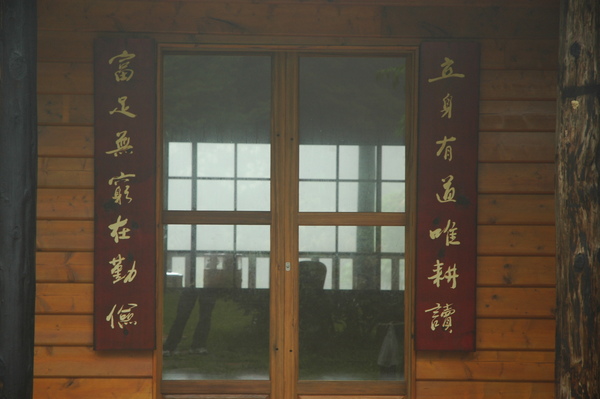 立身有道唯耕讀
富足無窮在勤儉